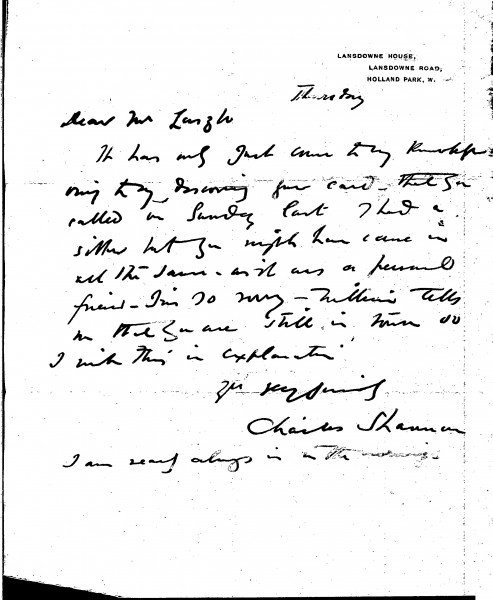 LANSDOWNE HOUSE,
LANSDOWNE ROAD,
HOLLAND PARK, W.
Thursday
Dear Mr Laszlo
It has only just come to my knowledge
owing to my discovering your card – that you
called on Sunday last I had a
sitter but you might have come in
all the same – as it was a personal
friend – I'm so sorry – tells
me that you are still in town so
I write this in explanation
yrs very sincerely
Charles Shannon
I am nearly always in in the mornings.